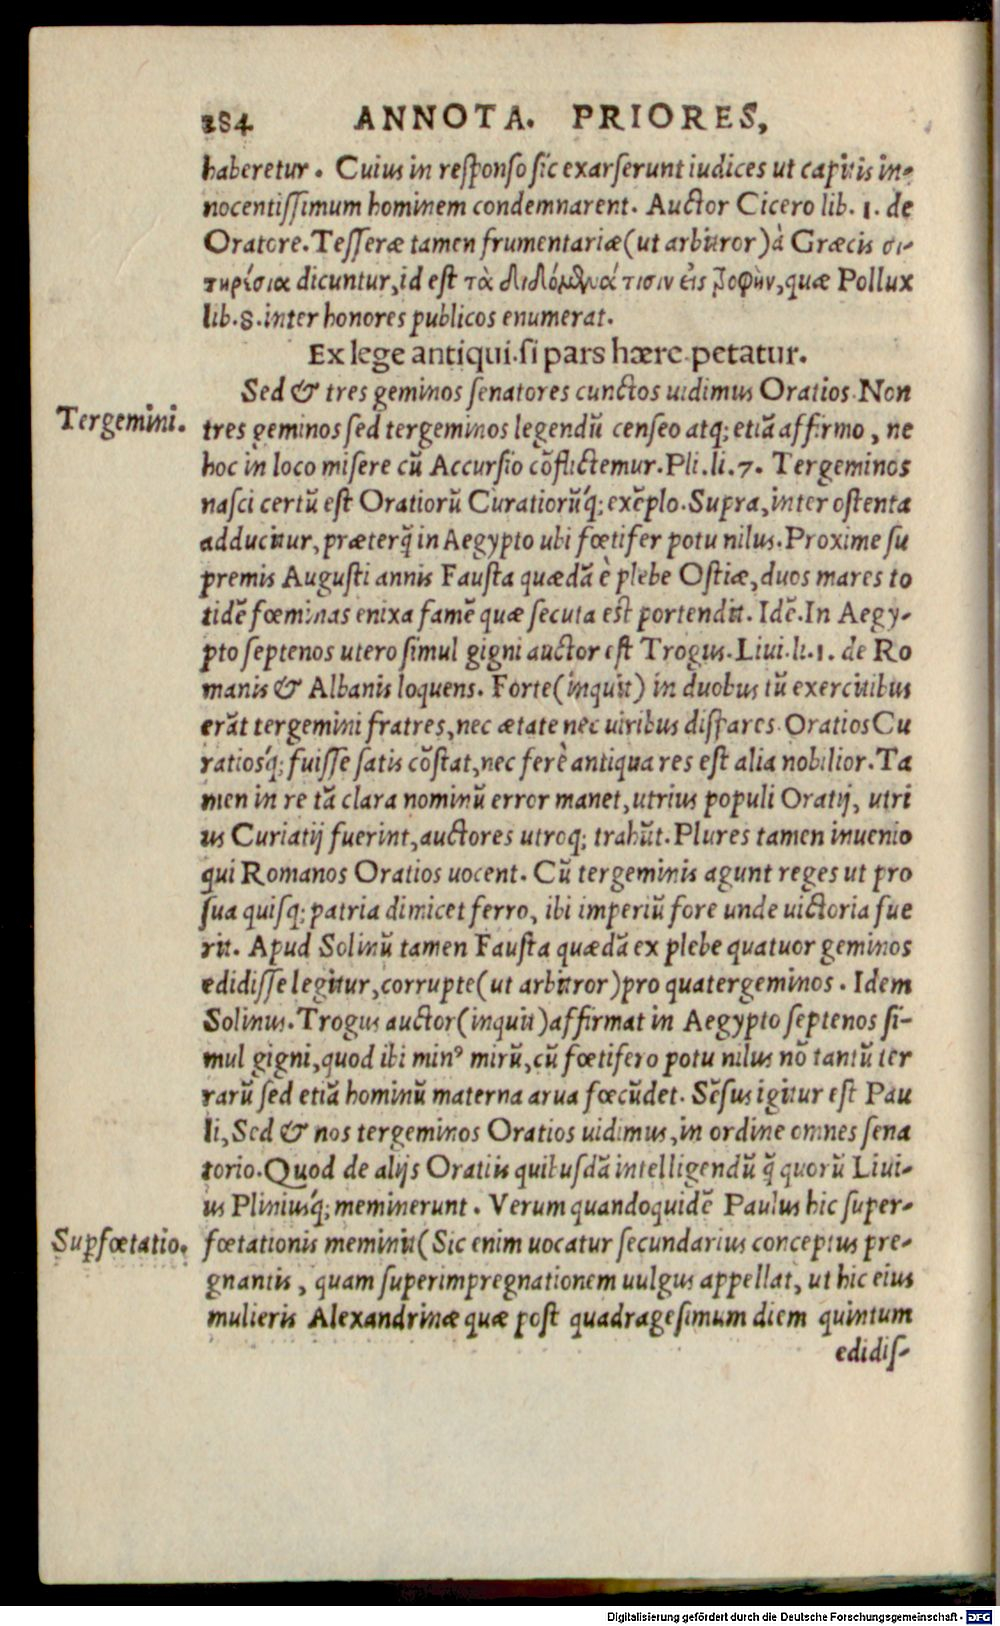 284 ANNOTA. PRIORES,
haberetur. Cuius in responso sic exarserunt iudices ut capitis in-
nocentissimum hominem condemnarent. Auctor Cicero lib. 1. de
Oratore. Tesseræ tamen frumentariæ (ut arbitror) à Græcis σι-
τηρέσια dicuntur, id est τὰ διδόμενά τισιν εἰς τροφὴν, quæ Pollux
lib. 8. inter honores publicos enumerat.
Ex lege antiqui. si pars hære. petatur.
Sed & tres geminos senatores cunctos uidimus Oratios. Non
Tergemini.
tres geminos sed tergeminos legendũ censeo atq; etiã affirmo, ne
hoc in loco misere cũ Accursio cõflictemur. Pli. li. 7. Tergeminos
nasci certũ est Oratiorũ Curatiorũq́; exẽplo. Supra, inter ostenta
adducitur, præterq̃ in Aegypto ubi fœtifer potu nilus. Proxime su
premis Augusti annis Fausta quædã è plebe Ostiæ, duos mares to
tidẽ fœminas enixa famẽ quæ secuta est portendit. Idẽ. In Aegy-
pto septenos utero simul gigni auctor est Trogus. Liui. li. 1. de Ro
manis & Albanis loquens. Forte (inquit) in duobus tũ exercitibus
erãt tergemini fratres, nec ætate nec uiribus dispares. Oratios Cu
ratiosq́; fuisse satis cõstat, nec ferè antiqua res est alia nobilior. Ta
men in re tã clara nominũ error manet, utrius populi Oratij, utri
us Curiatij fuerint, auctores utroq; trahũt. Plures tamen inuenio
qui Romanos Oratios uocent. Cũ tergeminis agunt reges ut pro
sua quisq; patria dimicet ferro, ibi imperiũ fore unde uictoria fue
rit. Apud Solinũ tamen Fausta quædã ex plebe quatuor geminos
edidisse legitur, corrupte (ut arbitror) pro quatergeminos. Idem
Solinus. Trogus auctor (inquit) affirmat in Aegypto septenos si-
mul gigni, quod ibi minꝰ mirũ, cũ fœtifero potu nilus nõ tantũ ter
rarũ sed etiã hominũ materna arua fœcũdet. Sẽsus igitur est Pau
li, Sed & nos tergeminos Oratios uidimus, in ordine omnes sena
torio. Quod de alijs Oratiis quibusdã intelligendũ q̃ quorũ Liui-
us Pliniusq́; meminerunt. Verum quandoquidẽ Paulus hic super-
Supfœtatio.
fœtationis meminit (Sic enim uocatur secundarius conceptus pre-
gnantis, quam superimpregnationem uulgus appellat, ut hic eius
mulieris Alexandrinæ quæ post quadragesimum diem quintum
edidis-
Digitalisierung gefördert durch die Deutsche Forschungsgemeinschaft - DFG